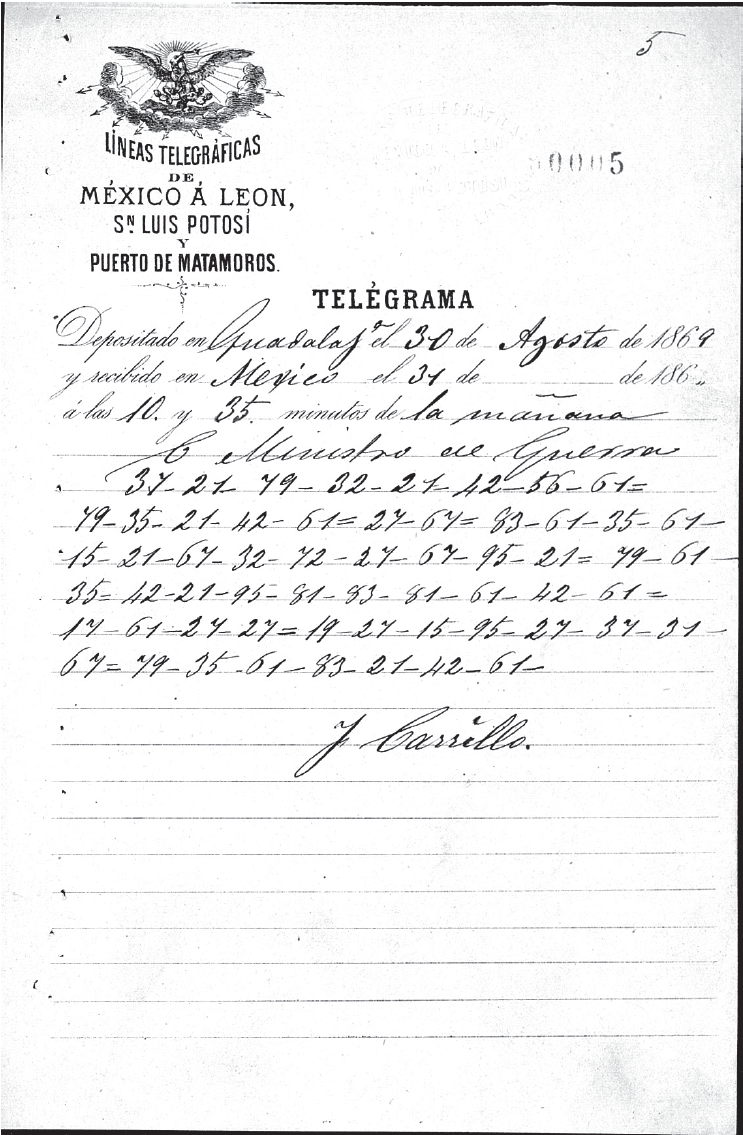 5
LÍNEAS TELEGRÁFICAS
DE
MÉXICO Á LEON,
Sⁿ LUIS POTOSÍ
Y
PUERTO DE MATAMOROS.
0005
TELÉGRAMA
Depositado en Guadalajª el 30 de Agosto de 1869
y recibido en Mexico el 31 de de 186
á las 10. y 35. minutos de la mañana
C Ministro de Guerra
37-21-79-32-21-42-56-61=
79-35-21-42-61=27-67=83-61-35-61-
15-21-67-32-72-27-67-95-21=79-61-
35=42-21-95-81-83-81-61-42-61=
17-61-27-27=19-27-15-95-27-37-31-
67=79-35-61-83-21-42-61-
J Carrillo.